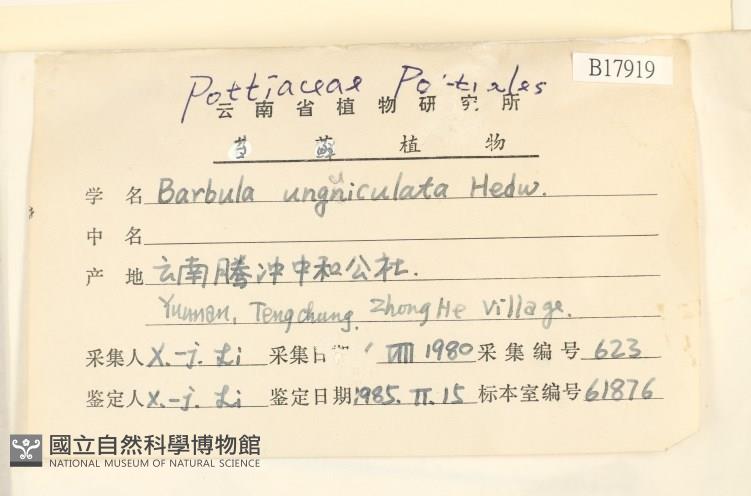 Pottiaceae Pottiales
B17919
云南省植物研究所
苔藓植物
学名 Barbula unguiculata Hedw.
中名
产地 云南腾冲中和公社.
Yunnan, Tengchung, ZhongHe Village.
采集人 X.-j. Li 采集日期 VIII 1980 采集编号 623
鉴定人 X.-j. Li 鉴定日期 1985. II. 15 标本室编号 61876
國立自然科學博物館
NATIONAL MUSEUM OF NATURAL SCIENCE